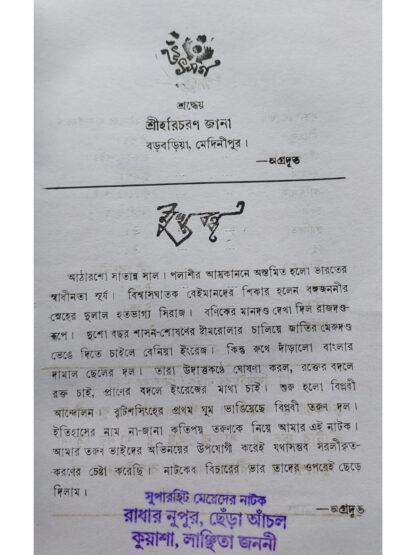 উৎসর্গ
শ্রদ্ধেয়
শ্রীহরিচরণ জানা
বড়বড়িয়া, মেদিনীপুর।
—অগ্রদূত
আঠারশো সাতান্ন সাল। পলাশীর আম্রকাননে অস্তমিত হলো ভারতের
স্বাধীনতা সূর্য। বিশ্বাসঘাতক বেইমানদের শিকার হলেন বঙ্গজননীর
স্নেহের দুলাল হতভাগ্য সিরাজ। বণিকের মানদণ্ড দেখা দিল রাজদণ্ড-
রূপে। দুশো বছর শাসন-শোষণের ষ্টীমরোলার চালিয়ে জাতির মেরুদণ্ড
ভেঙে দিতে চাইলে বেনিয়া ইংরেজ। কিন্তু রুখে দাঁড়ালো বাংলার
দামাল ছেলের দল। তারা উদাত্তকণ্ঠে ঘোষণা করল, রক্তের বদলে
রক্ত চাই, প্রাণের বদলে ইংরেজের মাথা চাই। শুরু হলো বিপ্লবী
আন্দোলন। বৃটিশসিংহের প্রথম ঘুম ভাঙিয়েছে বিপ্লবী তরুণ দল।
ইতিহাসের নাম না-জানা কতিপয় তরুণকে নিয়ে আমার এই নাটক।
আমার তরুণ ভাইদের অভিনয়ের উপযোগী করেই যথাসম্ভব সরলীকৃত-
করণের চেষ্টা করেছি। নাটকের বিচারের ভার তাদের ওপরেই ছেড়ে
দিলাম।
—অগ্রদূত
সুপারহিট মেয়েদের নাটক
রাধার নুপুর, ছেঁড়া আঁচল
কুয়াশা, লাঞ্ছিতা জননী